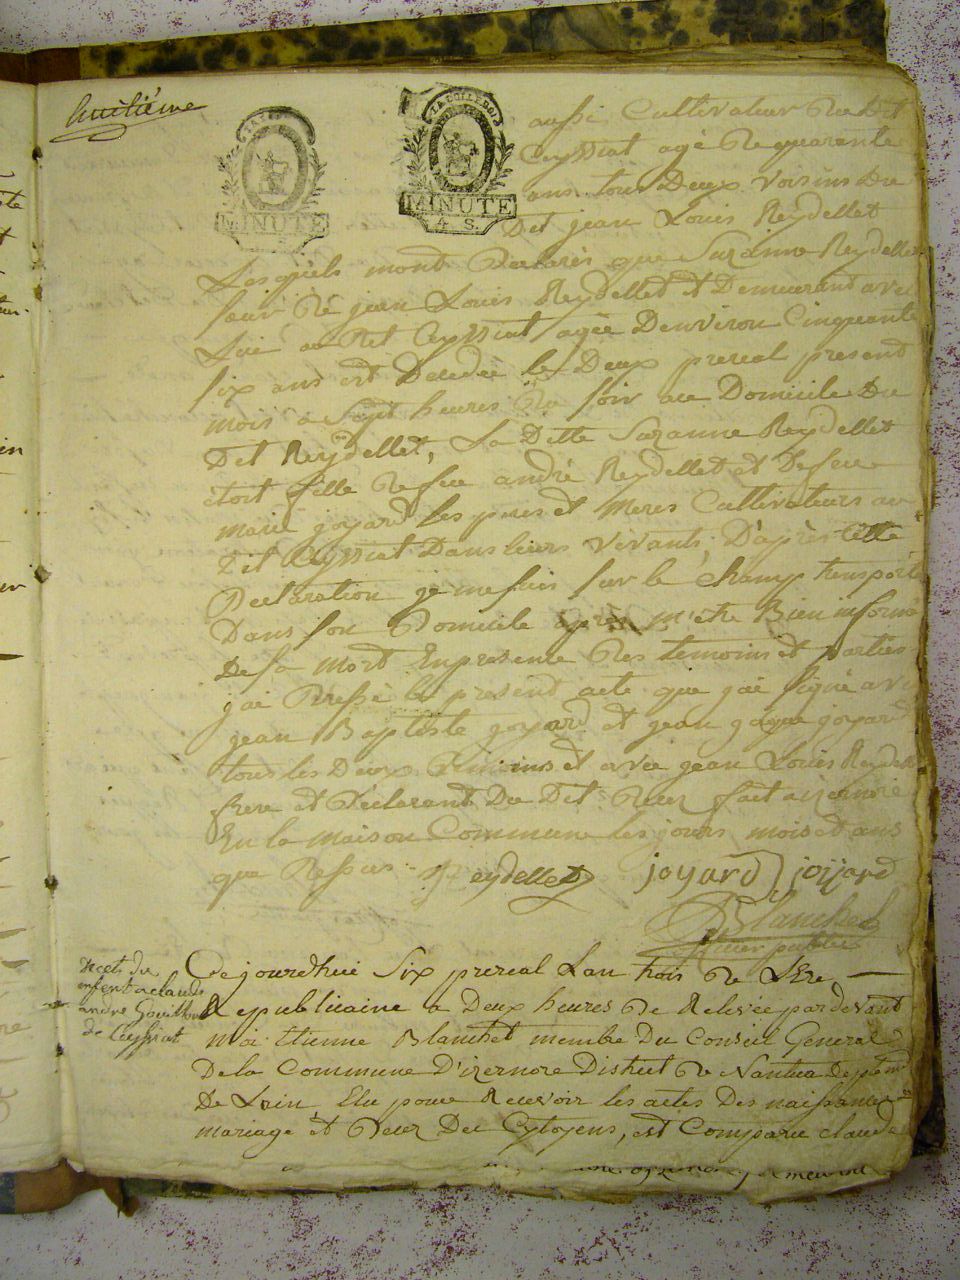 huitième
LA LOI LE ROI
MINUTE
MINUTE
4 S.
aussi Cultivateur Dudit
Ceyssiat agé De quarante
ans tous Deux voisins Du
Dit jean Louis Reydellet
Lesquels mont Declarés que Suzanne Reydellet
sœur De jean Louis Reydellet et Demeurant avec
Lui au Dit Ceyssiat agée Denviron Cinquante
six ans est Decedée le Deux prereal present
mois a Sept heures Du soir au Domicile Du
Dit Reydellet, La Ditte Suzanne Reydellet
etoit fille De feu andré Reydellet et De feue
marie joyard les peres et Meres Cultivateurs au
Dit Ceyssiat Dans leurs vivants, D'après Cette
Declaration je me suis sur le Champ transporté
Dans son Domicile après m'etre Bien informé
De sa mort En presence Des temoins et parties
j'ai Dressé le present acte que j'ai signé avec
jean Baptiste joyard et jean joyard
tous les Deux temoins et avec jean Louis Reydellet
frere et Declarant Du Dit Deces fait a izernore
En la maison Commune les jours mois et ans
que Dessus Reydellet joyard joyard
Blanchet
officier public
Deces du
enfent a claude
andre
de Ceyssiat
Cejourdhui Six prereal Lan trois De LEre
Republicaine a Deux heures De Relevée pardevant
moi Etienne Blanchet membre Du Conseil General
De la Commune D'izernore District De Nantua Depemt
De Lain Elu pour Recevoir les actes Des naissances
mariage et Deces Des Cytoyens, est Comparu claude